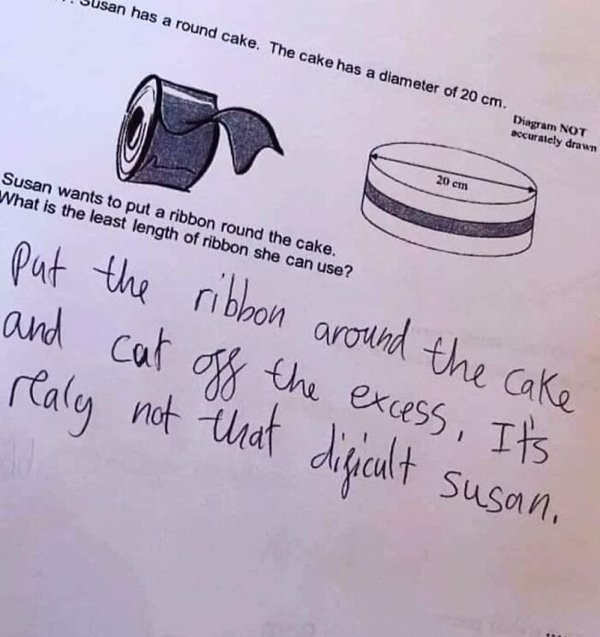 Susan has a round cake. The cake has a diameter of 20 cm.
Diagram NOT
accurately drawn
20 cm
Susan wants to put a ribbon round the cake.
What is the least length of ribbon she can use?
Put the ribbon around the cake
and cut off the excess, It's
realy not that dificult susan.